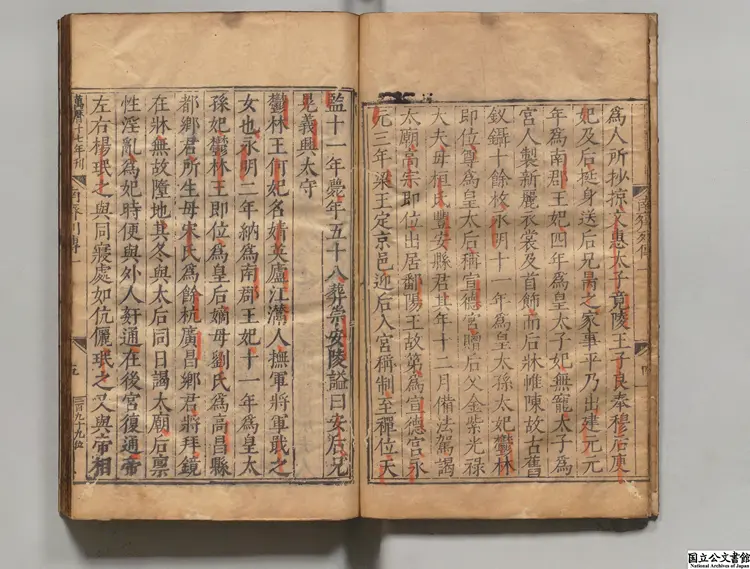 爲人所抄掠文惠太子竟陵王子良奉穆后庾
妃及后挺身送后兄昺之家事平乃出建元元
年爲南郡王妃四年爲皇太子妃無寵太子爲
宮人製新麗衣裳及首飾而后牀帷陳故古舊
釵鑷十餘枚永明十一年爲皇太孫太妃鬱林
即位尊爲皇太后稱宣德宮贈后父金紫光祿
大夫母桓氏豐安縣君其年十二月備法駕謁
太廟高宗即位出居鄱陽王故第爲宣德宮永
元三年梁王定京邑迎后入宮稱制至禪位天
南齊列傳一
四
監十一年薨年五十八葬崇安陵謚曰安后兄
晃義興太守
鬱林王何妃名婧英廬江灊人撫軍將軍戢之
女也永明二年納爲南郡王妃十一年爲皇太
孫妃鬱林王即位爲皇后嫡母劉氏爲高昌縣
都鄉君所生母宋氏爲餘杭廣昌鄉君將拜鏡
在牀無故墮地其冬與太后同日謁太廟后稟
性淫亂爲妃時便與外人姧通在後宮復通帝
左右楊珉之與同寢處如伉儷珉之又與帝相
萬曆十七年刊
南齊列傳一
五
國立公文書館
National Archives of Japan